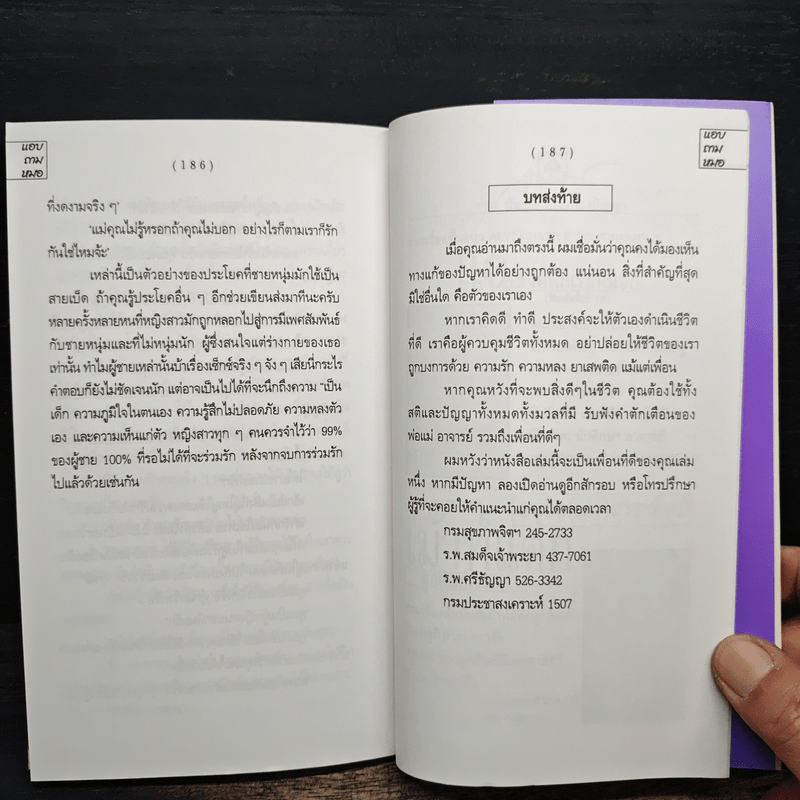 แอบ
ถาม
หมอ
(186)
ที่งดงามจริง ๆ'
'แม่คุณไม่รู้หรอกถ้าคุณไม่บอก อย่างไรก็ตามเราก็รัก
กันใช่ไหมจ้ะ'
เหล่านี้เป็นตัวอย่างของประโยคที่ชายหนุ่มมักใช้เป็น
สายเบ็ด ถ้าคุณรู้ประโยคอื่น ๆ อีกช่วยเขียนส่งมาทีนะครับ
หลายครั้งหลายหนที่หญิงสาวมักถูกหลอกไปสู่การมีเพศสัมพันธ์
กับชายหนุ่มและที่ไม่หนุ่มนัก ผู้ซึ่งสนใจแต่ร่างกายของเธอ
เท่านั้น ทำไมผู้ชายเหล่านั้นบ้าเรื่องเซ็กซ์จริง ๆ จัง ๆ เสียนี่กระไร
คำตอบก็ยังไม่ชัดเจนนัก แต่อาจเป็นไปได้ที่จะนึกถึงความ "เป็น
เด็ก ความภูมิใจในตนเอง ความรู้สึกไม่ปลอดภัย ความหลงตัว
เอง และความเห็นแก่ตัว หญิงสาวทุก ๆ คนควรจำไว้ว่า 99%
ของผู้ชาย 100% ที่รอไม่ได้ที่จะร่วมรัก หลังจากจบการร่วมรัก
ไปแล้วด้วยเช่นกัน
แอบ
ถาม
หมอ
(187)
บทส่งท้าย
เมื่อคุณอ่านมาถึงตรงนี้ ผมเชื่อมั่นว่าคุณคงได้มองเห็น
ทางแก้ของปัญหาได้อย่างถูกต้อง แน่นอน สิ่งที่สำคัญที่สุด
มิใช่อื่นใด คือตัวของเราเอง
หากเราคิดดี ทำดี ประสงค์จะให้ตัวเองดำเนินชีวิต
ที่ดี เราคือผู้ควบคุมชีวิตทั้งหมด อย่าปล่อยให้ชีวิตของเรา
ถูกบงการด้วย ความรัก ความหลง ยาเสพติด แม้แต่เพื่อน
หากคุณหวังที่จะพบสิ่งดีๆในชีวิต คุณต้องใช้ทั้ง
สติและปัญญาทั้งหมดทั้งมวลที่มี รับฟังคำตักเตือนของ
พ่อแม่ อาจารย์ รวมถึงเพื่อนที่ดีๆ
ผมหวังว่าหนังสือเล่มนี้จะเป็นเพื่อนที่ดีของคุณเล่ม
หนึ่ง หากมีปัญหา ลองเปิดอ่านดูอีกสักรอบ หรือโทรปรึกษา
ผู้รู้ที่จะคอยให้คำแนะนำแก่คุณได้ตลอดเวลา
กรมสุขภาพจิตฯ 245-2733
ร.พ.สมด็จเจ้าพระยา 437-7061
ร.พ.ศรีธัญญา 526-3342
กรมประชาสงเคราะห์ 1507